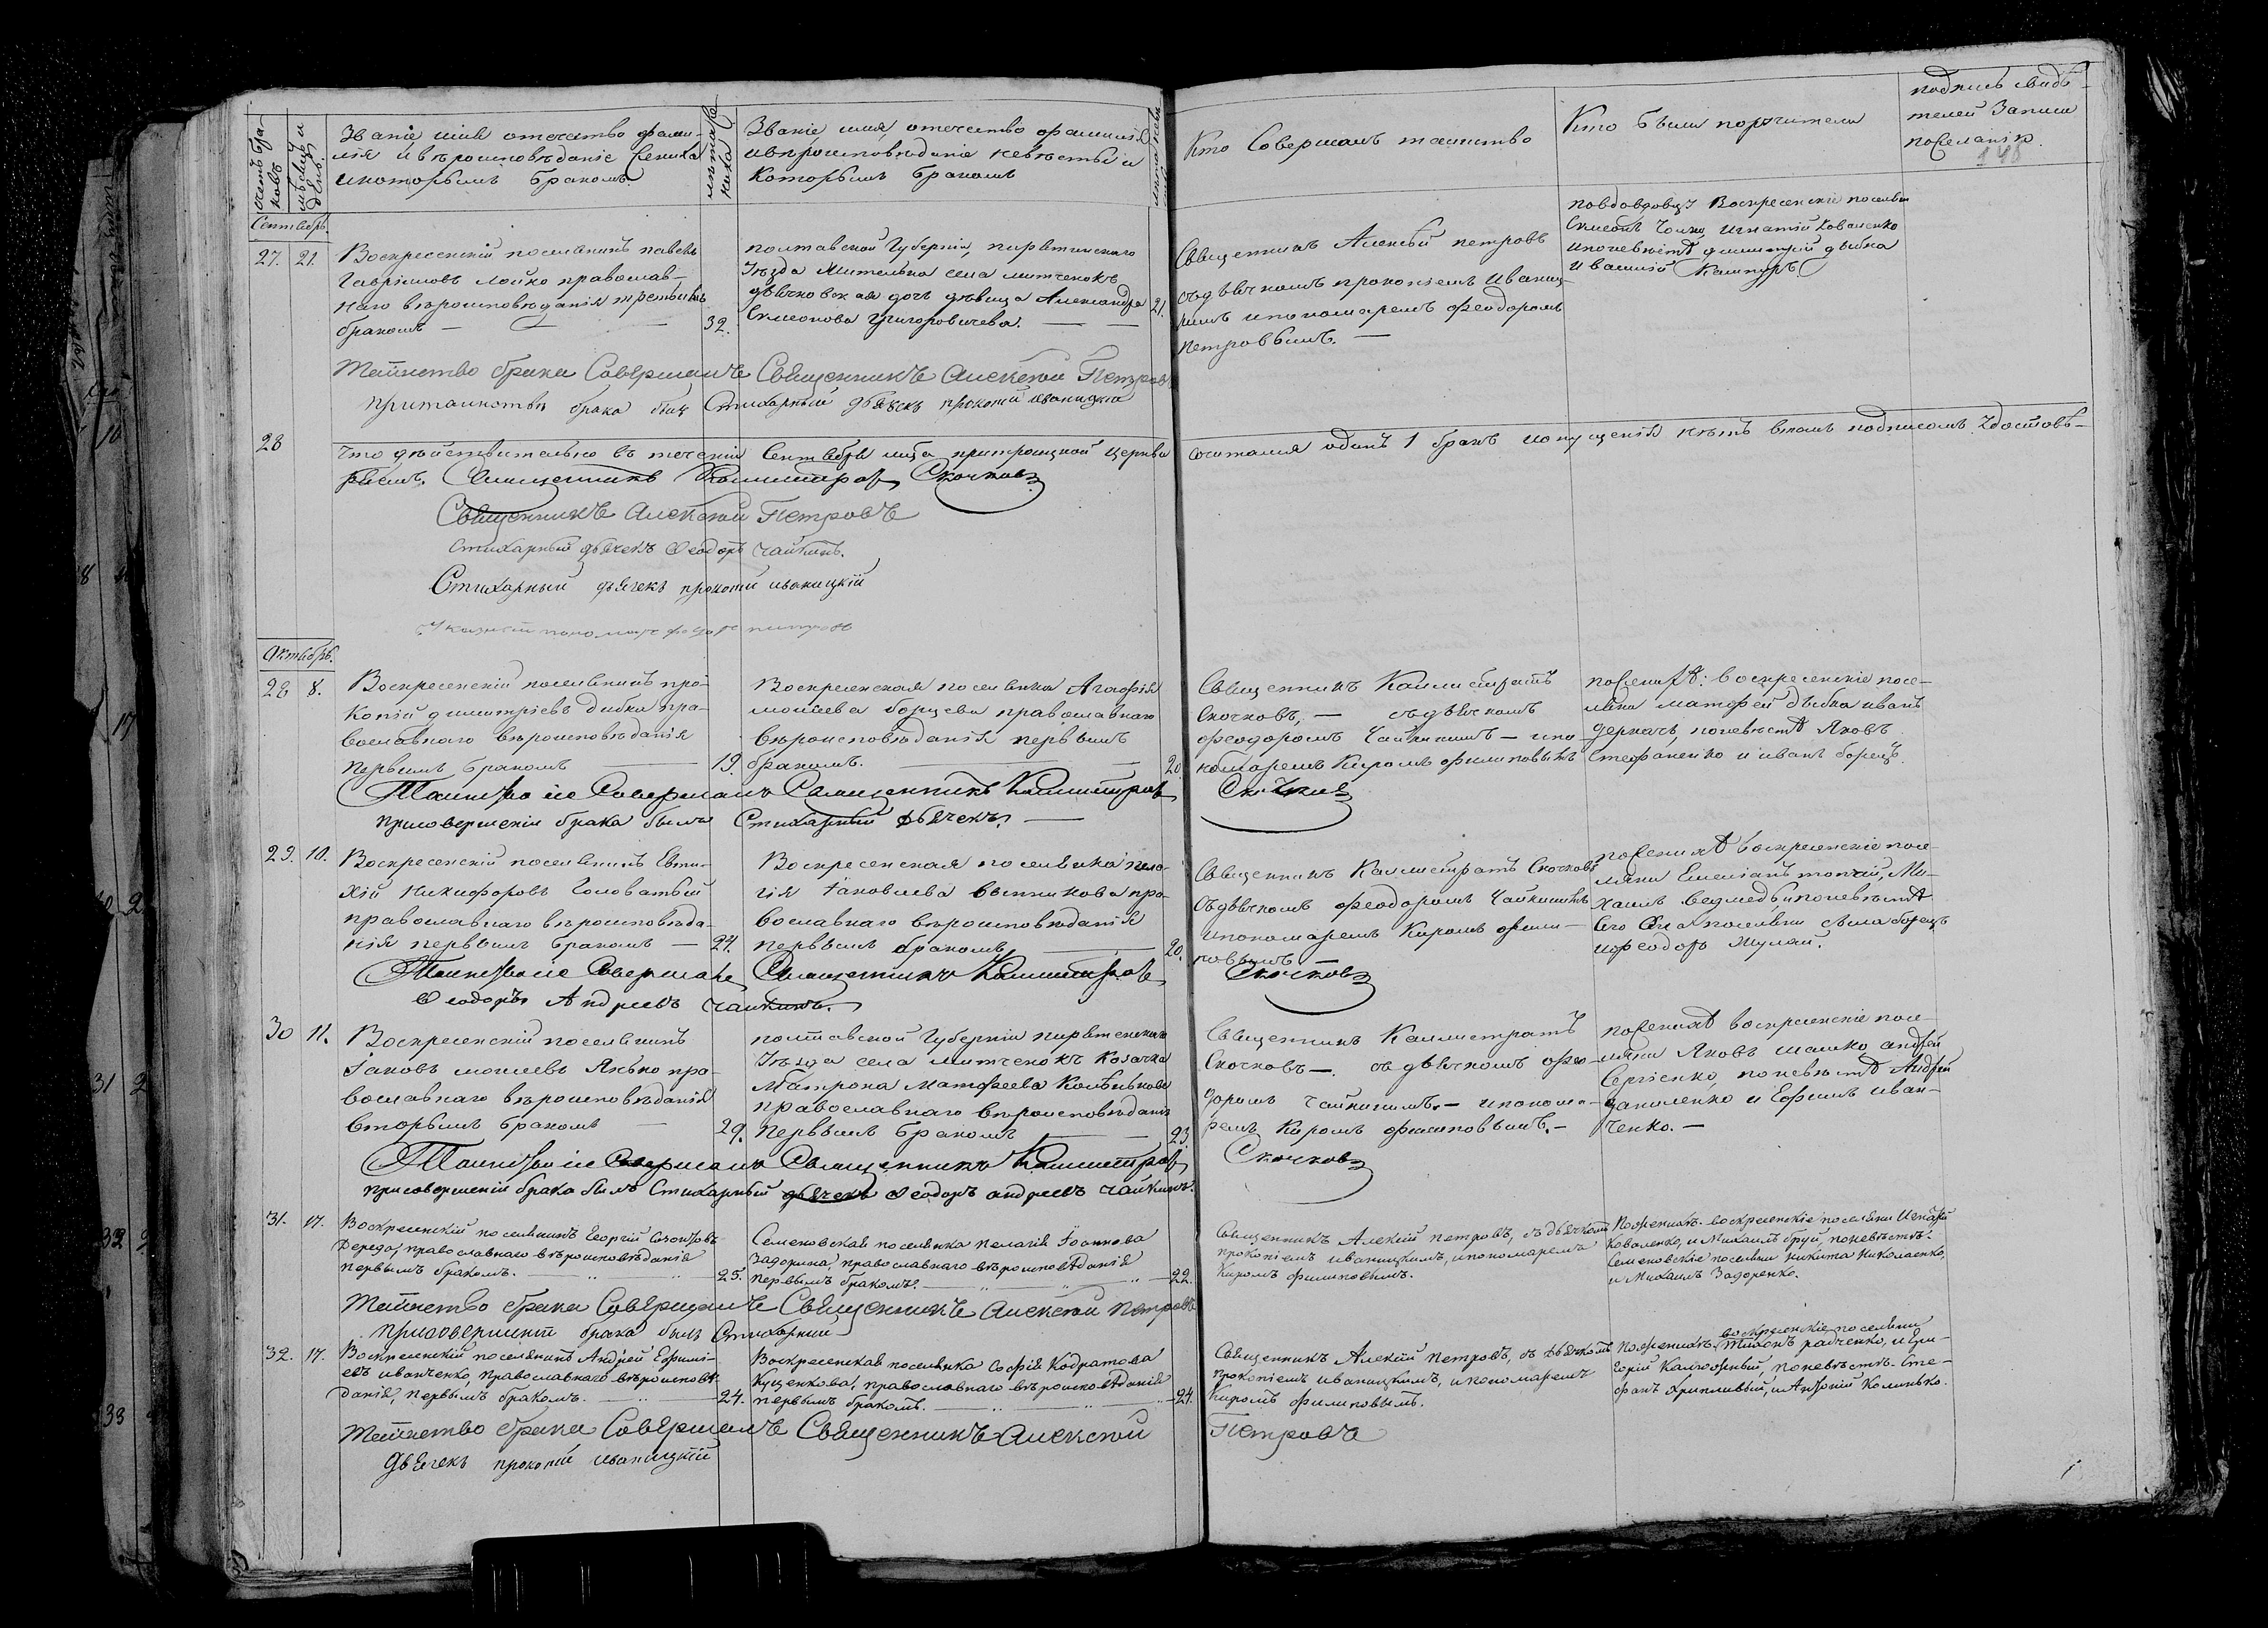 счетъ бра-
ковъ
мѣсяцъ и
день.
Званіе имя отечество фами-
лія и вѣроисповѣданіе жениха
и которымъ бракомъ.
лѣта же-
ниха
Званіе имя, отечество фамилія
и вѣроисповѣданіе невѣсты и
которымъ бракомъ
лѣта невѣ
Кто Совершалъ таинство
Кто были поручители
подпись свидѣ-
телей Записи
по желанію.
148
Сентябрь
27. 21. Воскресенскій поселянинъ павелъ
Гавріиловъ лойко православ-
наго вѣроисповѣданія третьимъ
бракомъ — 32.
полтавской Губерніи, пирятинскаго
Уѣзда село митченокъ
дьячковская дочь дѣвица Александра
Симеонова Григоровичева. — 21.
Священникъ Алексѣй петровъ
съ дьячкомъ прокопіемъ иваниц-
кимъ и пономаремъ феодоромъ
петровымъ. —
Воскресенскіе поселяне
игнатій коваленко
и по невѣстѣ димитрій дыбка
и василій
Таинство брака Совершалъ Священникъ Алексѣй Петровъ
при таинствѣ брака былъ Стихарный дьячекъ прокопій иваницкій
28
Что дѣйствительно въ теченіи Сентября мѣсца при троицкой церкви
сочитался одинъ 1 бракъ и опущенія нѣтъ въ томъ подписомъ Удостовѣ-
ряемъ. Священникъ Каллистратъ Скочковъ
Священникъ Алексѣй Петровъ
Стихарный дьячекъ Феодоръ чайкинъ.
Стихарный дьячекъ прокопій иваницкій
Указный пономарь федоръ петровъ
Октябрь.
28 8. Воскресенскій поселянинъ про-
копій димитріевъ дибка пра-
вославнаго вѣроисповѣданія
первымъ бракомъ — 19.
Воскресенская поселянка Агафія
моисеева борцева православнаго
вѣроисповѣданія первымъ
бракомъ. — 20
Священникъ Каллистратъ
Скочковъ, — съ дьячкомъ
феодоромъ Чайкинимъ — и по-
номаремъ Киромъ филиповымъ
по женихѣ: воскресенскіе посе-
ляни матфей дыбка иванъ
деркачъ, по невѣстѣ Яковъ
Стефаненко и иванъ борецъ.
Таинство сіе Совершалъ Священникъ Каллистратъ Скочковъ
при совершеніи брака былъ Стихарный дьячекъ. —
29. 10. Воскресенскій поселянинъ Евти-
хій Никифоровъ Головатый
православнаго вѣроисповѣда-
нія первымъ бракомъ — 24.
Воскресенская поселянка пела-
гія Іаковлева пра-
вославнаго вѣроисповѣданія
первымъ бракомъ — 20.
Священникъ Каллистратъ Скочковъ
съ дьячкомъ феодоромъ Чайкинимъ
и пономаремъ Киромъ фили-
повымъ
по женихѣ воскресенскіе посе-
ляни Емеліанъ топчій, Ми-
хаилъ ведмедь, и по невѣстѣ
борецъ
и феодоръ Шулай.
Таинство сіе Совершалъ Священникъ Каллистратъ Скочковъ
Феодоръ Андреевъ Чайкинъ.
30 11. Воскресенскій поселянинъ
Іаковъ моисеевъ Яхно пра-
вославнаго вѣроисповѣданія
вторымъ бракомъ — 29.
полтавской Губерніи пирятинскаго
Уѣзда села митченокъ козачка
Матрона Матфеева
православнаго вѣроисповѣданія
первымъ бракомъ — 23.
Священникъ Каллистратъ
Скочковъ —. съ дьячкомъ фео-
доромъ Чайкинимъ. — и понома-
ремъ Киромъ филиповымъ. —
по женихѣ воскресенскіе посе-
ляни Яковъ шамко андрей
Сергіенко, по невѣстѣ Андрей
даниленко и Ефимъ иван-
ченко. —
Таинство сіе Совершалъ Священникъ Каллистратъ Скочковъ
при совершеніи брака былъ Стихарный дьячекъ Феодоръ андреевъ Чайкинъ.
31. 17. Воскресенскій поселянинъ Георгій Созонтовъ
Середа, православнаго вѣроисповѣданія
первымъ бракомъ. — 25.
Семеновская поселянка Пелагія Іоаннова
Задорина, православнаго вѣроисповѣданія
первымъ бракомъ. — 22.
Священникъ Алексій петровъ, съ дьячкомъ
прокопіемъ иваницкимъ, и пономаремъ
Киромъ филиповымъ.
По женихѣ. воскресенскіе поселяни Игнатій
Коваленко, и Михаилъ бруй, по невѣстѣ.
Семеновскіе поселяни никита Николаенко,
и Михаилъ Задоренко.
Таинство брака Совершалъ Священникъ Алексѣй Петровъ
при совершеніи брака былъ Стихарный
32. 17. Воскресенскій поселянинъ Андрей Ефимі-
евъ иванченко, православнаго вѣроисповѣ-
данія, первымъ бракомъ. — 24.
Воскресенская поселянка Софія Кодратова
Куценкова, православнаго вѣроисповѣданія
первымъ бракомъ. — 24.
Священникъ Алексій петровъ, съ дьячкомъ
прокопіемъ иваницкимъ, и пономаремъ
Киромъ филиповымъ.
По женихѣ. воскресенскіе поселяни
Тихонъ радченко, и Гри-
горій Калюжный, по невѣстѣ. Сте-
фанъ Хрипливый, и Антоній Колинько.
Таинство брака Совершалъ Священникъ Алексѣй Петровъ
Дьячекъ прокопій иваницкій